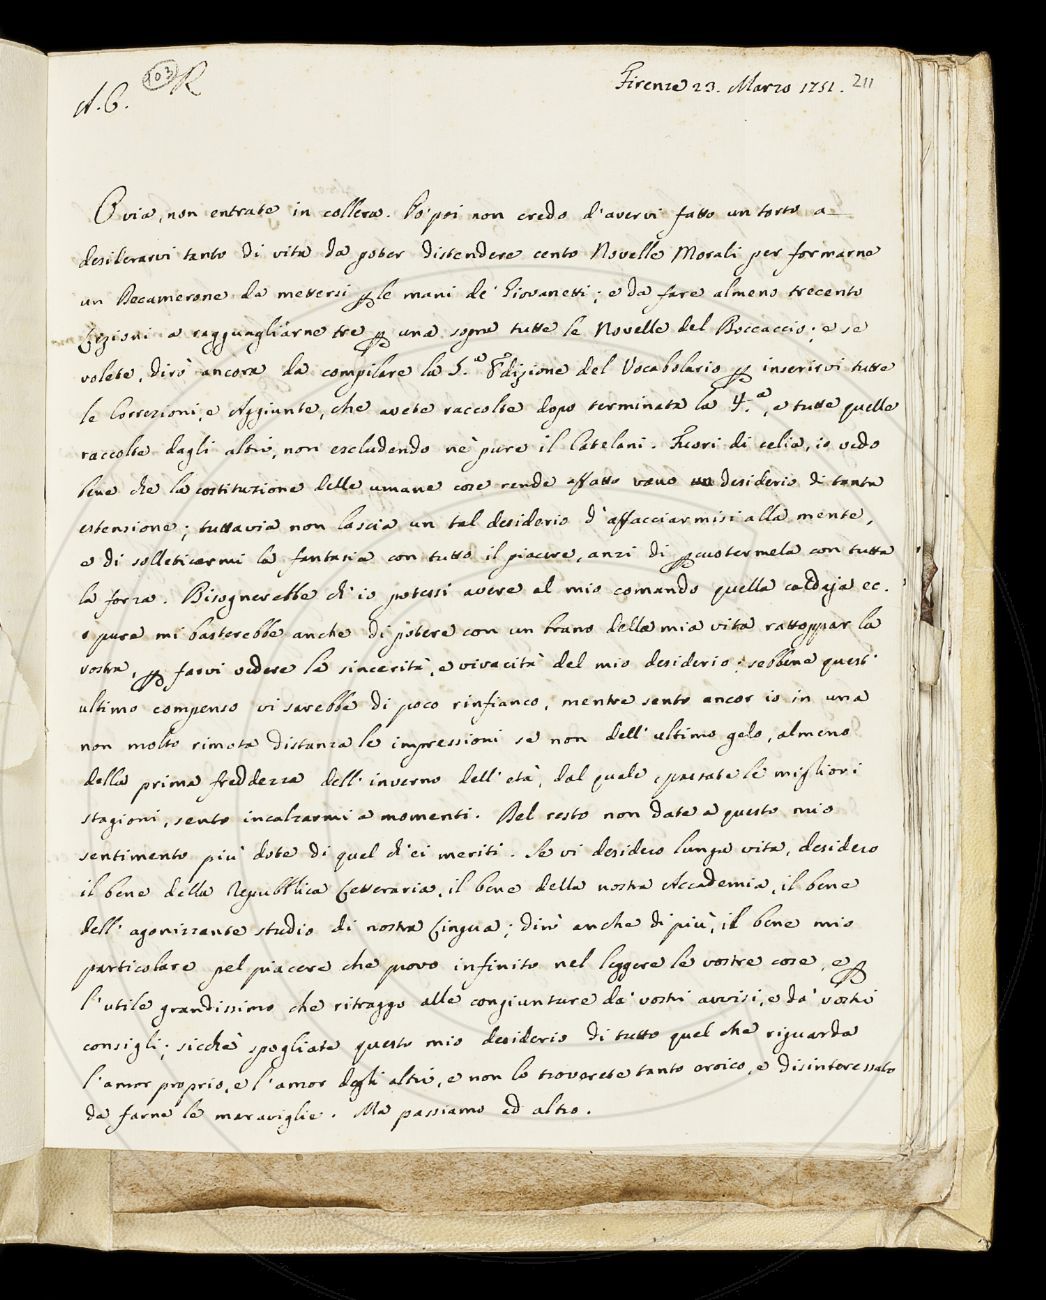 103 R
A. C.
Firenze 23. Marzo 1751. 211
O via, non entrate in collera. Io poi non credo d'avervi fatto un torto a
desiderarvi tanto di vita da poter distendere cento Novelle Morali per formarne
un Decamerone da mettersi p le mani de' Giovanetti; e da fare almeno trecento
Lezioni a ragguagliarne tre p una sopra tutte le Novelle del Boccaccio; e se
volete, dirò ancora da compilare la 5.ª Edizione del Vocabolario p inserirvi tutte
le Correzioni, e Aggiunte, che avete raccolte dopo terminata la 4.ª, e tutte quelle
raccolte dagli altri, non escludendo nè pure il Catelani. Fuori di celia, io vedo
bene che la costituzione delle umane cose rende affatto vano desiderio di tanta
estensione; tuttavia non lascia un tal desiderio d'affacciarmisi alla mente,
e di solleticarmi la fantasia con tutto il piacere, anzi di pcuotermela con tutta
la forza. Bisognerebbe ch'io potessi avere al mio comando quella caldaja ec.
o pure mi basterebbe anche di potere con un brano della mia vita rattoppar la
vostra, p farvi vedere la sincerità, e vivacità del mio desiderio; sebbene quest'
ultimo compenso vi sarebbe di poco rinfianco, mentre sento ancor io in una
non molto rimota distanza le impressioni se non dell'ultimo gelo, almeno
della prima freddezza dell'inverno dell'età, dal quale, passate le migliori
stagioni, sento incalzarmi a momenti. Del resto non date a questo mio
sentimento più dote di quel ch'ei meriti. Se vi desidero lunga vita, desidero
il bene della Repubblica Letteraria, il bene della nostra Accademia, il bene
dell'agonizzante studio di nostra Lingua; dirò anche di più, il bene mio
particolare pel piacere che provo infinito nel leggere le vostre cose, e p
l'utile grandissimo che ritraggo alle congiunture da' vostri avvisi, e da' vostri
consigli; sicchè spogliate questo mio desiderio di tutto quel che riguarda
l'amor proprio, e l'amor degli altri, e non lo troverete tanto eroico, e disinteressato
da farne le maraviglie. Ma passiamo ad altro.